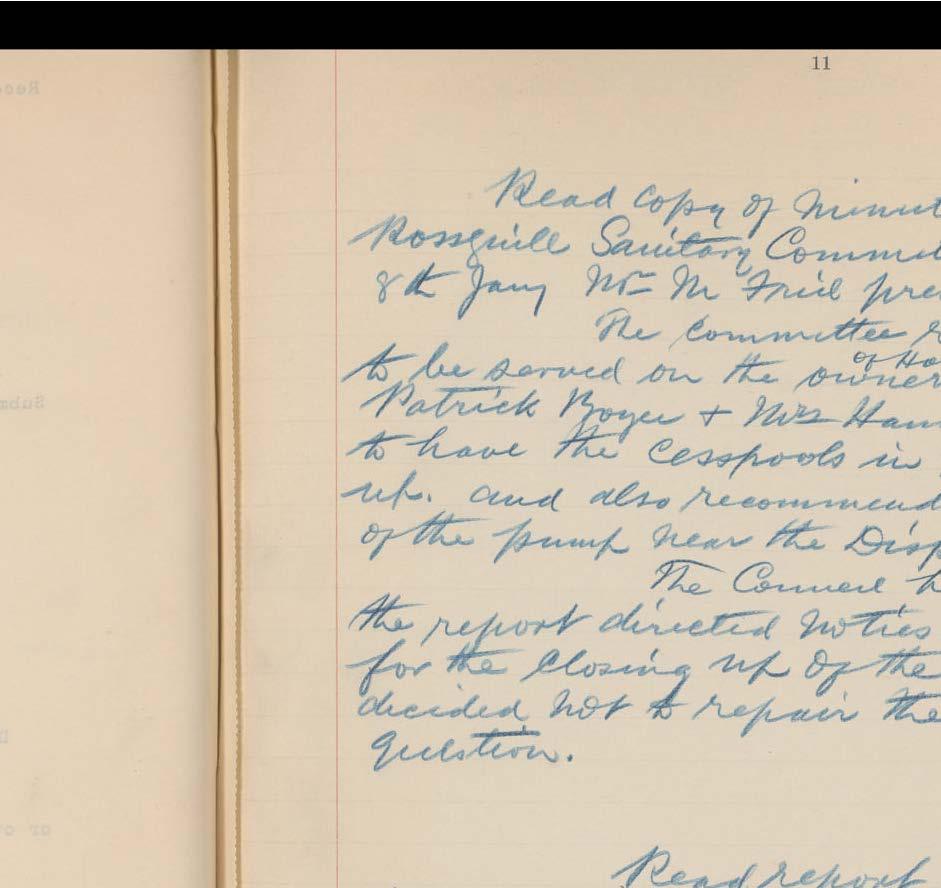 11
Read copy of Minut
Rossguill Sanitary Commit
8th Jany Wm Mc Friel pre
The committee r
of Ho
to be served on the owner
Patrick Boyce + Mrs Han
to have the cesspools in
up. and also recommend
of the pump near the Disp
The Council h
the report directed noties
for the closing up of the
decided not to repair the
question.
Read report